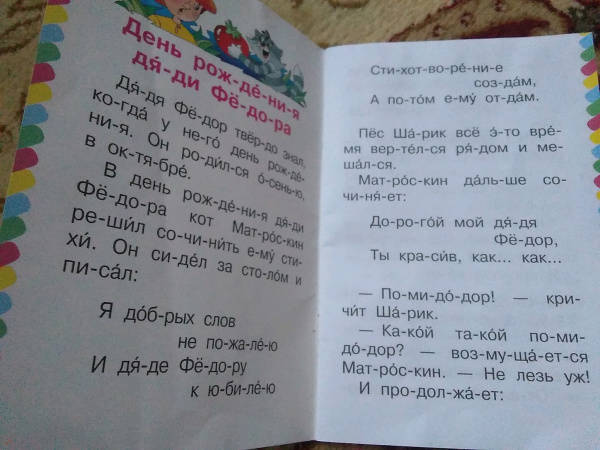 День рож-де́-ни-я
дя́-ди Фё-до-ра
Дя́-дя Фё-дор твёр-до знал,
ко-гда́ у не-го́ день рож-де́-
ни-я. Он ро-ди́л-ся о́-се-нью,
в ок-тя-бре́.
В день рож-де́-ни-я дя́-ди
Фё-до-ра кот Мат-ро́с-кин
ре-ши́л со-чи-ни́ть е-му́ сти-
хи́. Он си-де́л за сто-ло́м и
пи-са́л:
Я до́б-рых слов
не по-жа-ле́-ю
И дя́-де Фё-до-ру
к ю-би-ле́-ю
Сти-хот-во-ре́-ни-е
соз-да́м,
А по-то́м е-му́ от-да́м.
Пёс Ша́-рик всё э́-то вре́-
мя вер-те́л-ся ря́-дом и ме-
ша́л-ся.
Мат-ро́с-кин да́ль-ше со-
чи-ня́-ет:
До-ро-го́й мой дя́-дя
Фё-дор,
Ты кра-си́в, как... как...
— По-ми-до́-дор! — кри-
чи́т Ша́-рик.
— Ка-ко́й та-ко́й по-ми-
до́-дор? — воз-му-ща́-ет-ся
Мат-ро́с-кин. — Не лезь уж!
И про-дол-жа́-ет: